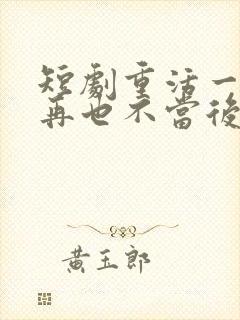 短劇重活一
再也不當後
黃玉郎